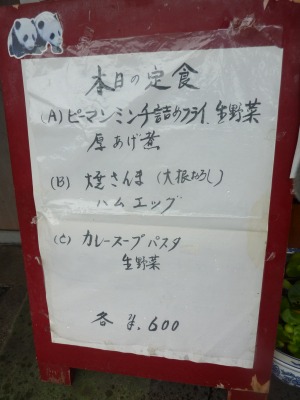 本日の定食
(A) ピーマンミンチ詰めフライ、生野菜
厚あげ煮
(B) 焼さんま (大根おろし)
ハムエッグ
(C) カレースープパスタ
生野菜
各 ¥.600